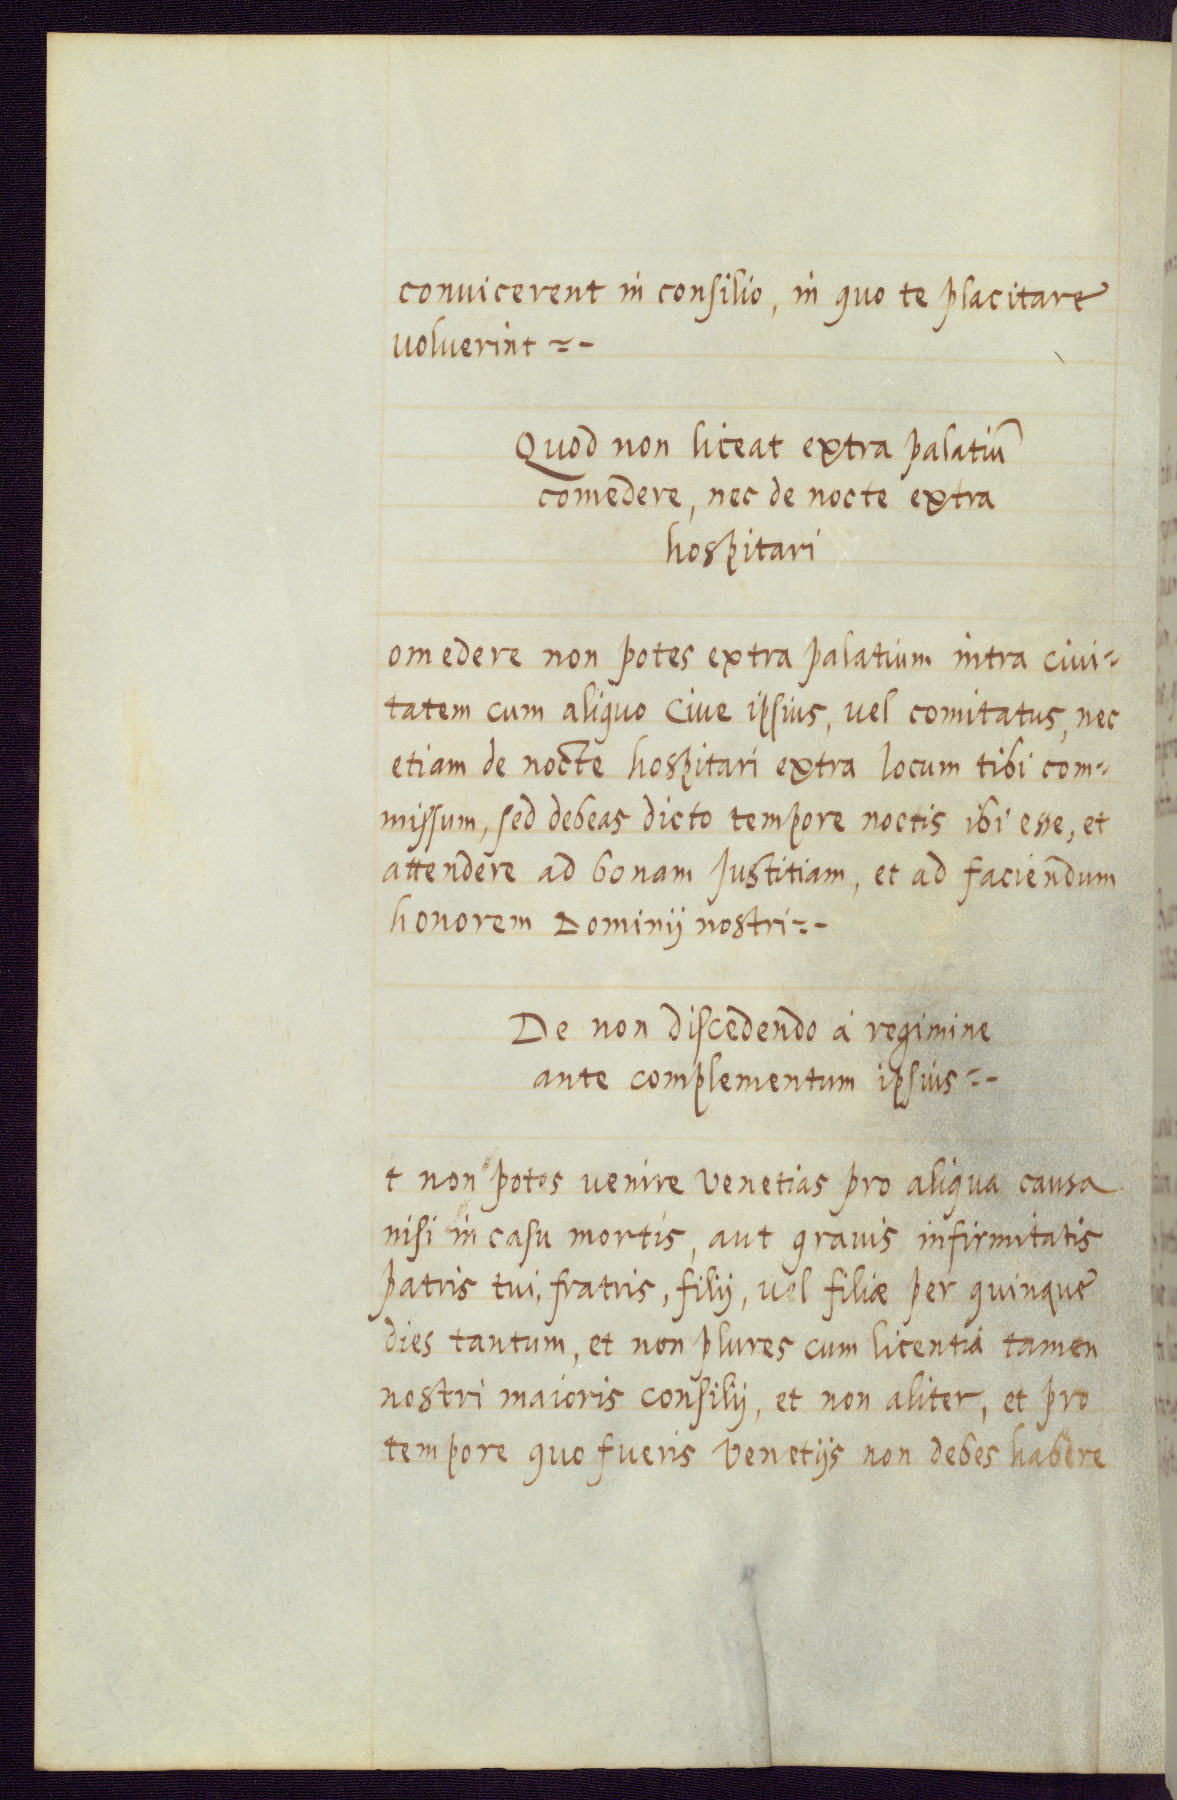 convicerent in consilio, in quo te placitare
voluerint =-
Quod non liceat extra palatiũ
comedere, nec de nocte extra
hospitari
omedere non potes extra palatium intra ciui=
tatem cum aliquo ciue ipsius, vel comitatus, nec
etiam de nocte hospitari extra locum tibi com=
missum, sed debeas dicto tempore noctis ibi esse, et
attendere ad bonam Justitiam, et ad faciendum
honorem Dominij nostri=-
De non discedendo à regimine
ante complementum ipsius=-
t non potes uenire Venetias pro aliqua causa
nisi in casu mortis, aut grauis infirmitatis
patris tui, fratris, filij, vel filiæ per quinque
dies tantum, et non plures cum licentia tamen
nostri maioris consilij, et non aliter, et pro
tempore quo fueris Venetijs non debes habere